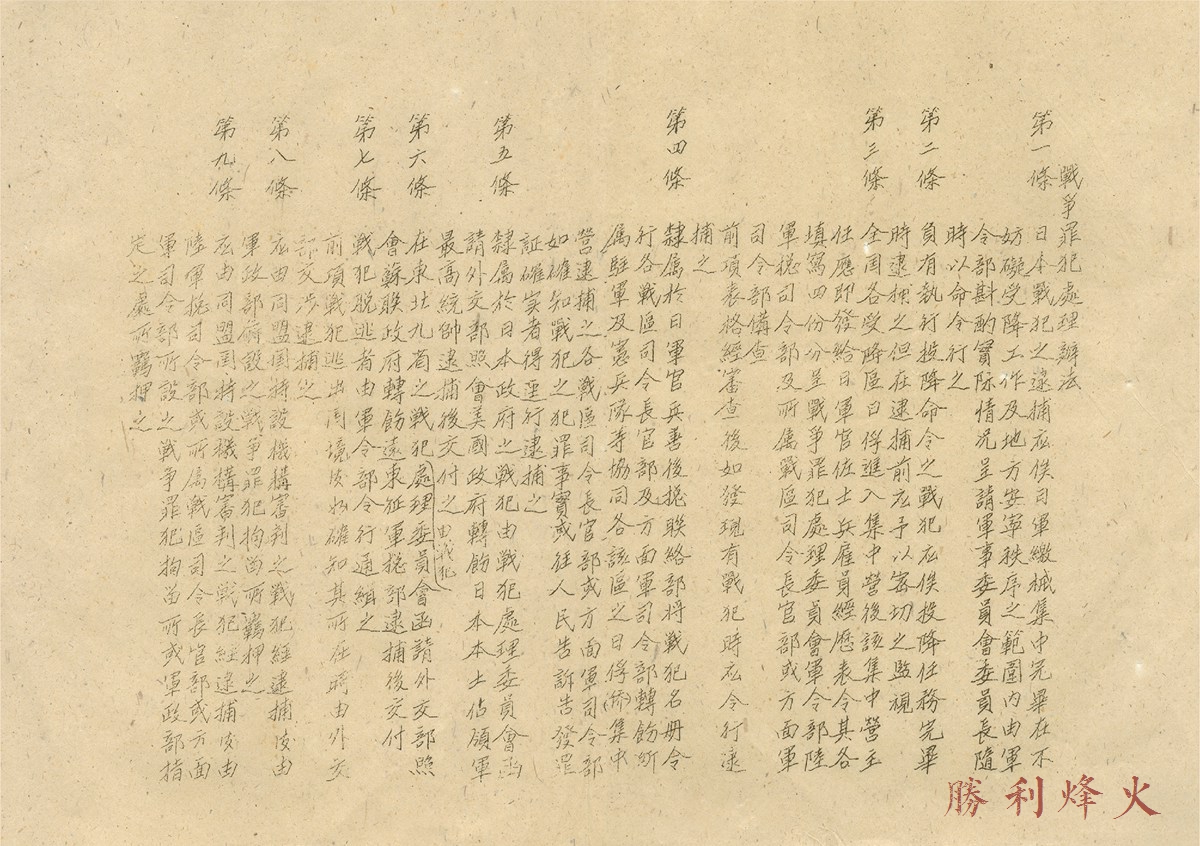 戰爭罪犯處理辦法
第一條 日本戰犯之逮捕应俟日軍繳械集中完畢在不
妨礙受降工作及地方安寧秩序之範圍內由軍
令部斟酌實际情况呈請軍事委員會委員長隨
時以命令行之
第二條 負有執行投降命令之戰犯应俟投降任務完畢
時逮捕之但在逮捕前应予以密切之監視
第三條 全国各受降區日俘進入集中營後該集中營主
任應即發給日軍官佐士兵雇員經歷表令其各
填寫四份分呈戰爭罪犯處理委員會軍令部陸
軍揔司令部及所属戰區司令長官部或方面軍
司令部備查
前項表格經審查後如發現有戰犯時应令行逮
捕之
第四條 隸属於日軍官兵善後揔聯絡部將戰犯名册令
行各戰區司令長官部及方面軍司令部轉飭所
属駐軍及憲兵隊等協同各該區之日俘(僑)集中
營逮捕之各戰區司令長官部或方面軍司令部
如確知戰犯之犯罪事實或任人民告訴告發罪
証確实者得逕行逮捕之
第五條 隸属於日本政府之戰犯由戰犯處理委員會函
請外交部照會美國政府轉飭日本本土佔領軍
最高統帥逮捕後交付之
第六條 在東北九省之戰犯由戰犯處理委員會函請外交部照
會蘇联政府轉飭遠東征軍揔部逮捕後交付
第七條 戰犯脱逃者由軍令部令行通緝之
前項戰犯逃出国境後如確知其所在時由外交
部交涉逮捕之
第八條 应由同盟国特設機構審判之戰犯經逮捕後由
軍政部所設之戰爭罪犯拘留所羈押之
第九條 应由同盟国特設機構審判之戰犯經逮捕後由
陸軍揔司令部或所属戰區司令長官部或方面
軍司令部所設之戰爭罪犯拘留所或軍政部指
定之處所羈押之
勝利烽火